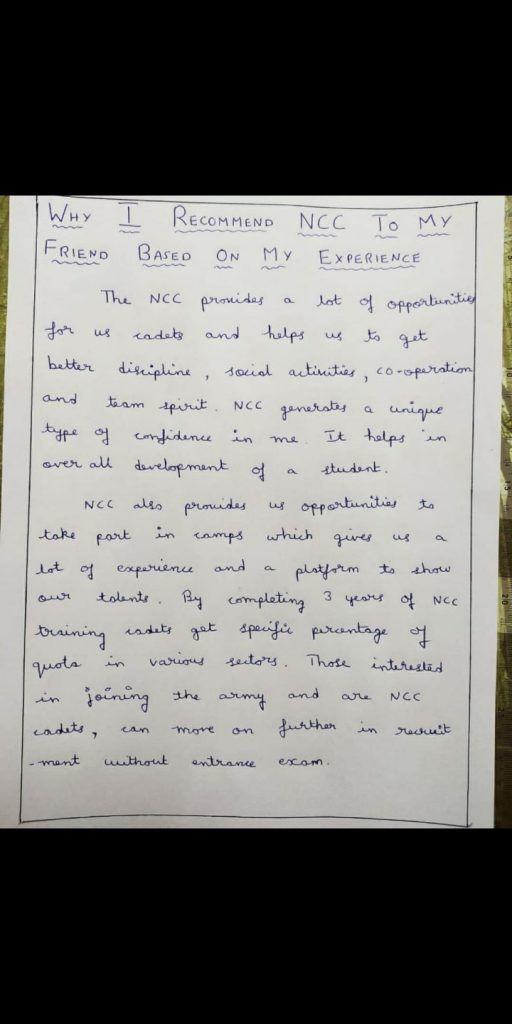 WHY I RECOMMEND NCC TO MY
FRIEND BASED ON MY EXPERIENCE
The NCC provides a lot of opportunities
for us cadets and helps us to get
better discipline, social activities, co-operation
and team spirit. NCC generates a unique
type of confidence in me. It helps in
over all development of a student.
NCC also provides us opportunities to
take part in camps which gives us a
lot of experience and a platform to show
our talents. By completing 3 years of NCC
training cadets get specific percentage of
quota in various sectors. Those interested
in joining the army and are NCC
cadets, can move on further in recruit
-ment without entrance exam.